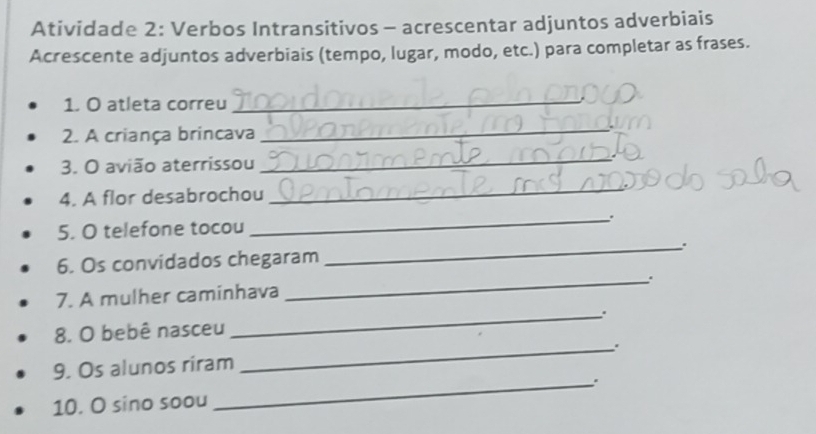 Atividade 2: Verbos Intransitivos – acrescentar adjuntos adverbiais
Acrescente adjuntos adverbiais (tempo, lugar, modo, etc.) para completar as frases.
• 1. O atleta correu rapidamente pela praça.
• 2. A criança brincava alegremente no jardim.
• 3. O avião aterrissou suavemente na pista.
• 4. A flor desabrochou lentamente no vaso da sala.
• 5. O telefone tocou ____________________.
• 6. Os convidados chegaram ____________________.
• 7. A mulher caminhava ____________________.
• 8. O bebê nasceu ____________________.
• 9. Os alunos riram ____________________.
• 10. O sino soou ____________________.